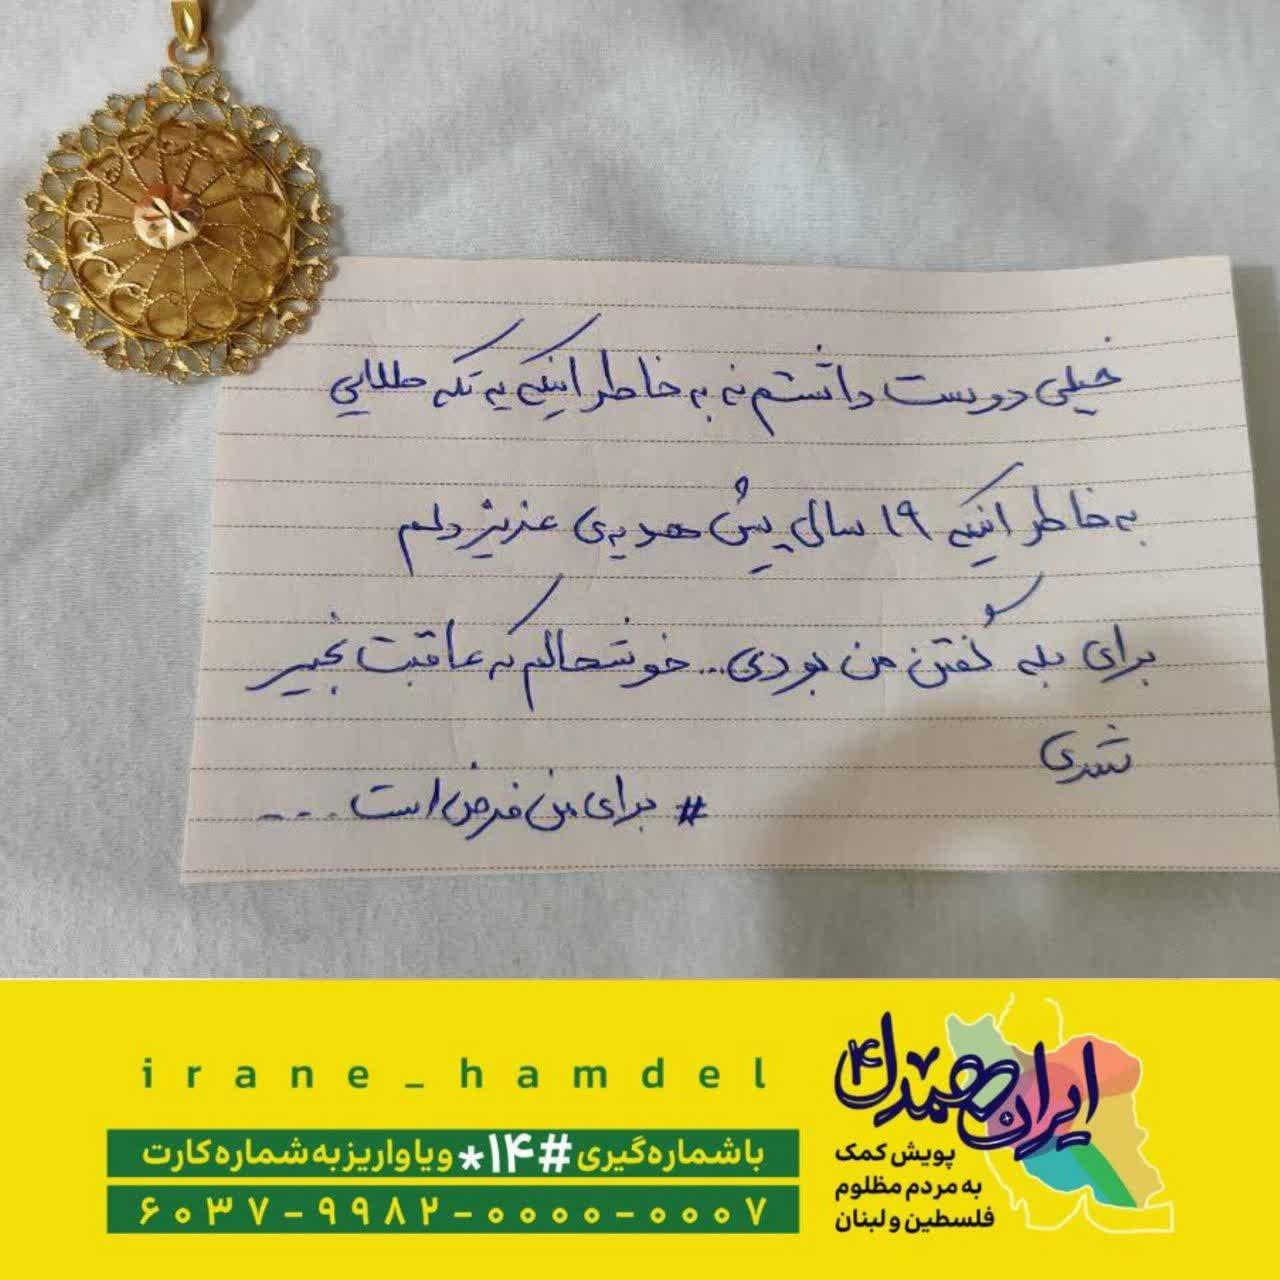 خیلی دوست داشتم نه به خاطر اینکه یه تکه طلایی
به خاطر اینکه ۱۹ سال پیش هدیه‌ی عزیز دلم
برای بله گفتن من بودی... خوشحالم که عاقبت بخیر
شدی
# برای من فرض است ....
irane_hamdel
با شماره‌گیری #۱۴* و یا واریز به شماره کارت
۶۰۳۷-۹۹۸۲-۰۰۰۰-۰۰۰۷
ایران همدل ۴
پویش کمک
به مردم مظلوم
فلسطین و لبنان